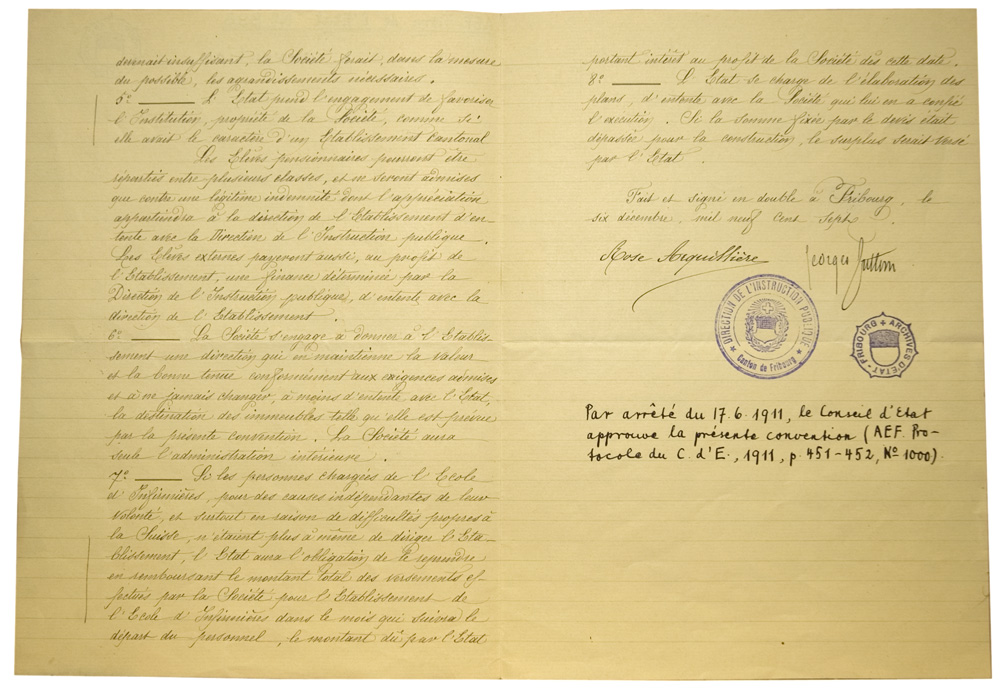 venait insuffisant, la Société ferait, dans la mesure
du possible, les agrandissements nécessaires.
5º L'Etat prend l'engagement de favoriser
l'Institution, propriété de la Société, comme si
elle avait le caractère d'un Etablissement Cantonal
Les Elèves pensionnaires pourront être
réparties entre plusieurs classes, et ne seront admises
que contre une légitime indemnité dont l'appréciation
appartiendra à la direction de l'Etablissement d'en-
tente avec la Direction de l'Instruction publique.
Les Elèves externes payeront aussi, au profit de
l'Etablissement, une finance déterminée par la
Direction de l'Instruction publique, d'entente avec la
direction de l'Etablissement.
6º La Société s'engage à donner à l'Etablis-
sement une direction qui en maintienne la valeur
et la bonne tenue conformément aux exigences admises
et à ne jamais changer, à moins d'entente avec l'Etat,
la destination des immeubles telle qu'elle est prévue
par la présente convention. La Société aura
seule l'administration intérieure.
7º Si les personnes chargées de l'Ecole
d'Infirmières, pour des causes indépendantes de leur
volonté, et surtout en raison de difficultés propres à
la Suisse, n'étaient plus à même de diriger l'Eta-
blissement, l'Etat aura l'obligation de le reprendre
en remboursant le montant total des versements ef-
fectués par la Société pour l'Etablissement de
l'Ecole d'Infirmières dans le mois qui suivra le
départ du personnel, le montant dû par l'Etat
portant intérêt au profit de la Société dès cette date.
8º L'Etat se charge de l'élaboration des
plans, d'entente avec la Société qui lui en a confié
l'exécution. Si la somme fixée par le devis était
dépassée pour la construction, le surplus serait versé
par l'Etat.
Fait et signé en double à Fribourg, le
six décembre, mil neuf cent sept.
Rose Arquillière Georges
DIRECTION DE L'INSTRUCTION PUBLIQUE
Canton de Fribourg
FRIBOURG ARCHIVES D'ETAT
Par arrêté du 17.6.1911, le Conseil d'Etat
approuve la présente convention (AEF. Pro-
tocole du C. d'E., 1911, p. 451-452, Nº 1000).